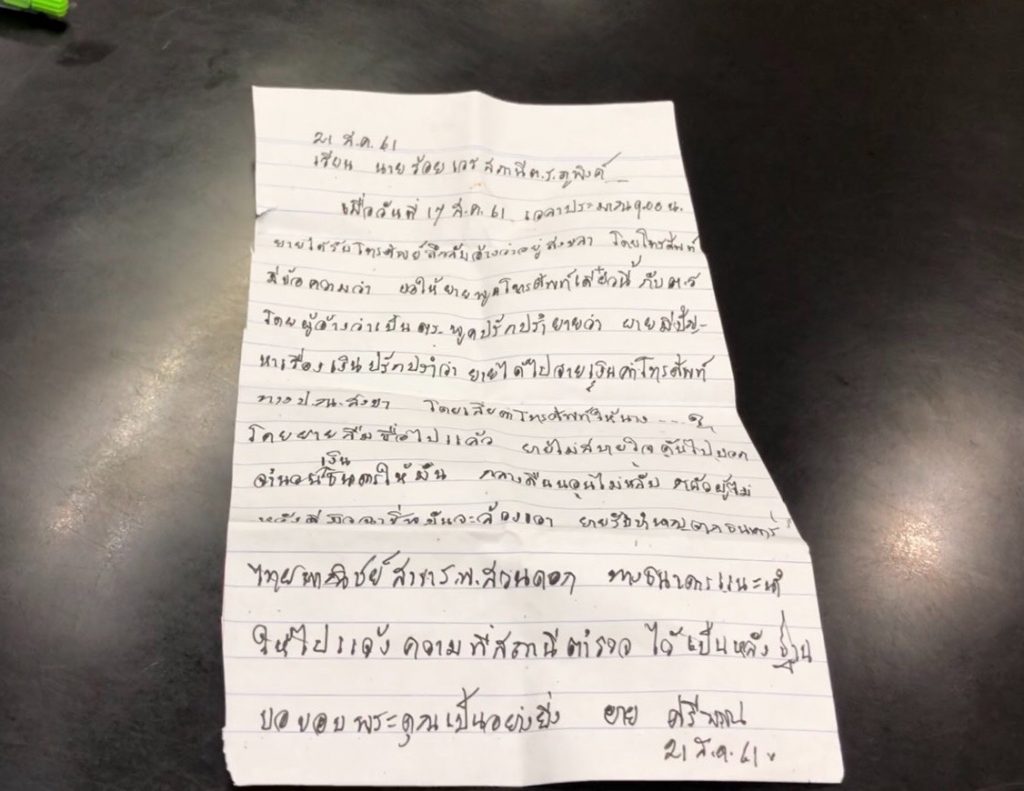 21 ส.ค. 61
เรียน นายร้อยเวร สถานีต.ร.ภูพิงค์
เมื่อวันที่ 17 ส.ค. 61 เวลาประมาณ 9.00 น.
ยายได้รับโทรศัพย์ลึกลับอ้างว่าอยู่สงขลา โดยโทรศัพท์
มีข้อความว่า ขอให้ยายพูดโทรศัพท์เดี๋ยวนี้ กับ ต.ร
โดยผู้อ้างว่าเป็น ตร. พูดปรักปรำยายว่า ยายมีปัญ-
หาเรื่องเงิน ปรักปรำว่า ยายได้ไปจ่ายเงินค่าโทรศัพท์
ทาง โดยเสียค่าโทรศัพท์ให้นาง ---
โดยยายลืมชื่อไปแล้ว ยายไม่สบายใจ ไปบอก
จำนวนเงินธนาคารให้มัน กลางคืนนอนไม่หลับ
มันจะล้องเอา ยาย ธนาคาร
ไทยพาณิชย์ สาขา ร.พ. สวนดอก ทางธนาคารแนะนำ
ให้ไปแจ้งความที่สถานีตำรวจ ไว้เป็นหลังฐาน
ขอขอบพระคุณเป็นอย่างยิ่ง ยาย ศรีวรรณ
21 ส.ค. 61